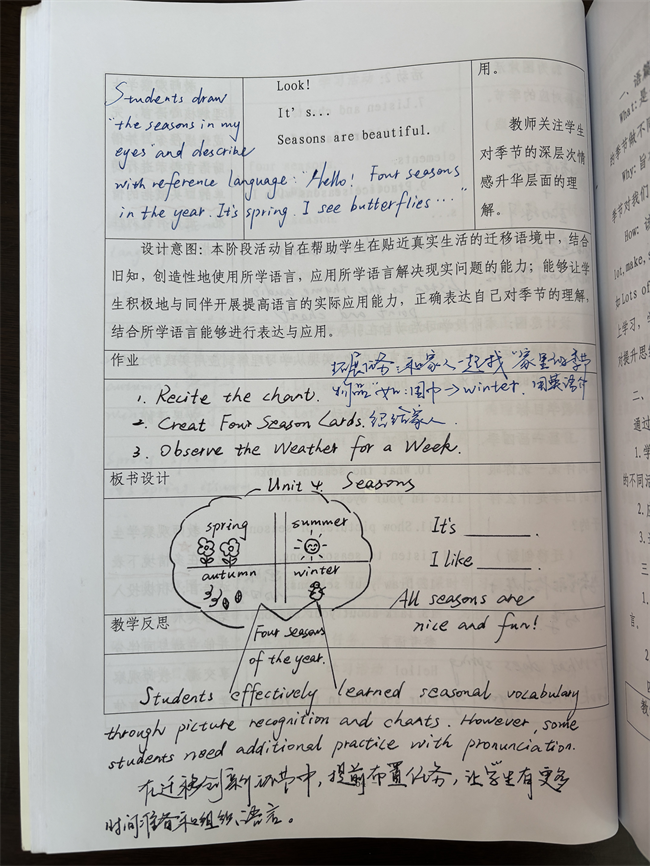 Students draw
"the seasons in my
eyes" and describe
with reference language: "Hello! Four seasons
in the year. It's spring. I see butterflies..."
Look!
It's...
Seasons are beautiful.
用。
教师关注学生
对季节的深层次情
感升华层面的理
解。
设计意图：本阶段活动旨在帮助学生在贴近真实生活的迁移语境中，结合
旧知，创造性地使用所学语言，应用所学语言解决现实问题的能力；能够让学
生积极地与同伴开展提高语言的实际应用能力，正确表达自己对季节的理解，
结合所学语言能够进行表达与应用。
作业
拓展任务：和家人一起找"家里的季节
物品"如：围巾→winter. 用英语介
1. Recite the chant.
2. Creat Four Season Cards. 绍给家人.
3. Observe the Weather for a Week.
板书设计
Unit 4 Seasons
spring
summer
autumn
winter
Four seasons
of the year.
It's ______.
I like ______.
All seasons are
nice and fun!
教学反思
Students effectively learned seasonal vocabulary
through picture recognition and chants. However, some
students need additional practice with pronunciation.
在迁移创新环节中，提前布置任务，让学生有更多
时间准备和组织语言。
一、语篇
What: 是
季节做不同
Why: 旨
季节对我们
How: 该
lot, make, s
如 Lots of
上学习，
对提升思维
二、
通过
1. 学
的不同活
2. 应
三
1.
言.
2
教